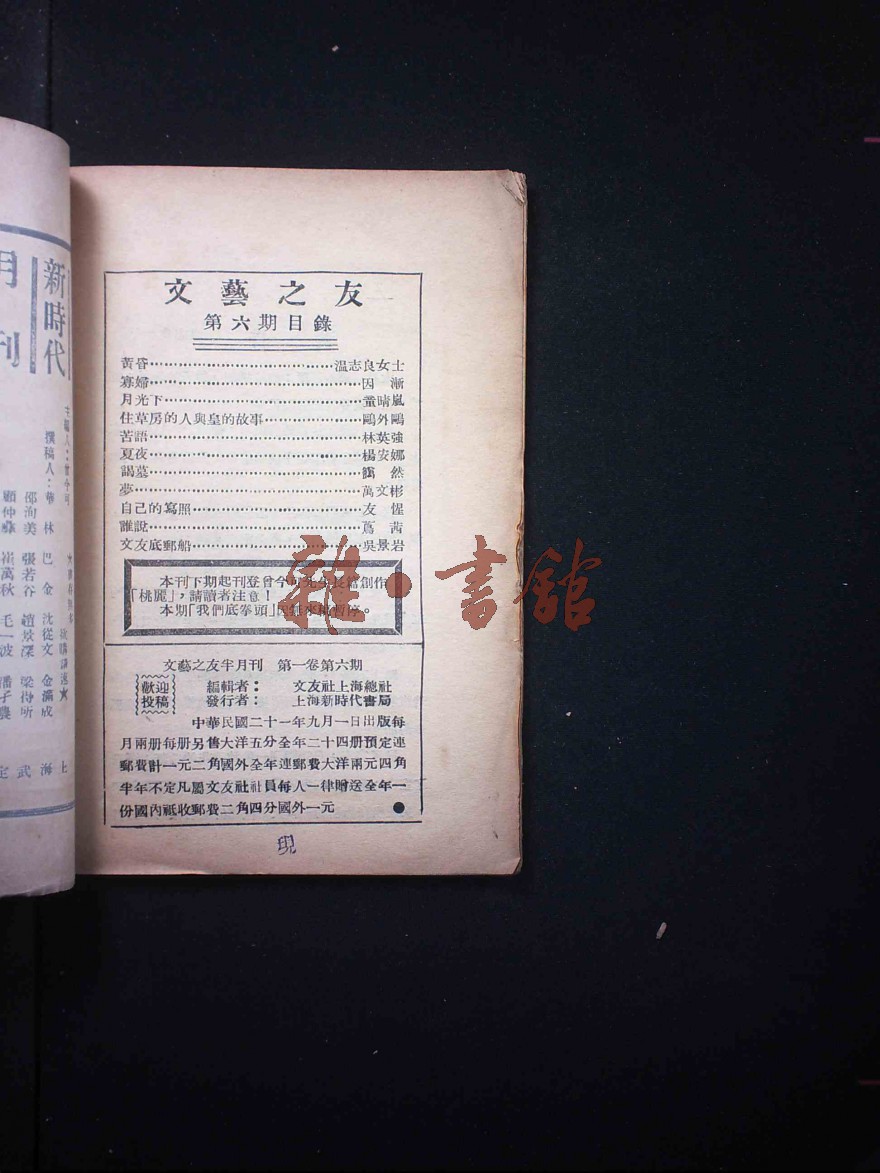 文藝之友
第六期目錄
黃昏⋯⋯溫志良女士
寡婦⋯⋯因漸
月光下⋯⋯董晴嵐
住草房的人與皇的故事⋯⋯鷗外鷗
苦語⋯⋯林英強
夏夜⋯⋯楊安娜
謁墓⋯⋯藹然
夢⋯⋯萬文彬
自己的寫照⋯⋯友惺
誰說⋯⋯蔦茜
文友底郵船⋯⋯吳景岩
本刊下期起刊登曾今可先生長篇創作
「桃麗」，請讀者注意！
本期「我們底拳頭」因雜來稿暫停。
文藝之友半月刊 第一卷第六期
歡迎投稿
編輯者： 文友社上海總社
發行者： 上海新時代書局
中華民國二十一年九月一日出版每
月兩册每册另售大洋五分全年二十四册預定連
郵費計一元二角國外全年連郵費大洋兩元四角
半年不定凡屬文友社社員每人一律贈送全年一
份國內祇收郵費二角四分國外一元
新時代
月刊
主編人：曾今可
撰稿人：華林 巴金 沈從文 金滿成
邵洵美 張若谷 趙景深 梁得所
顧仲彝 崔萬秋 毛一波 潘子農
上海武定
雜·書館